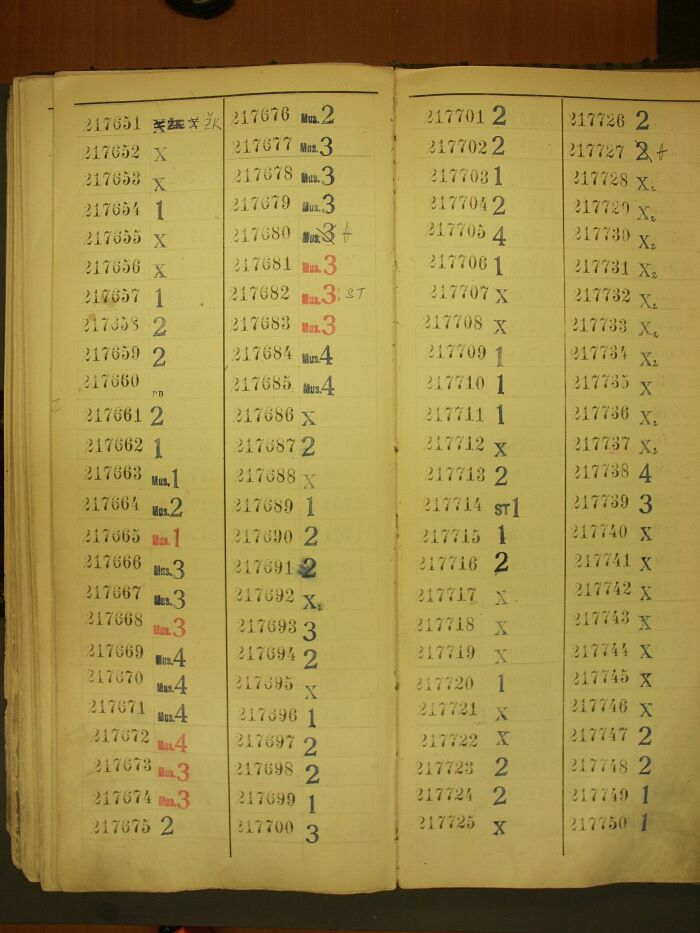 217651 X ŽK X ŽK
217652 X
217653 X
217654 1
217655 X
217656 X
217657 1
217658 2
217659 2
217660 PB
217661 2
217662 1
217663 Mus.1
217664 Mus.2
217665 Mus.1
217666 Mus.3
217667 Mus.3
217668 Mus.3
217669 Mus.4
217670 Mus.4
217671 Mus.4
217672 Mus.4
217673 Mus.3
217674 Mus.3
217675 2
217676 Mus.2
217677 Mus.3
217678 Mus.3
217679 Mus.3
217680 Mus.3
217681 Mus.3
217682 Mus.3 ST
217683 Mus.3
217684 Mus.4
217685 Mus.4
217686 X
217687 2
217688 X
217689 1
217690 2
217691 2
217692 X2
217693 3
217694 2
217695 X
217696 1
217697 2
217698 2
217699 1
217700 3
217701 2
217702 2
217703 1
217704 2
217705 4
217706 1
217707 X
217708 X
217709 1
217710 1
217711 1
217712 X
217713 2
217714 ST1
217715 1
217716 2
217717 X
217718 X
217719 X
217720 1
217721 X
217722 X
217723 2
217724 2
217725 X
217726 2
217727 2
217728 X2
217729 X2
217730 X2
217731 X2
217732 X2
217733 X2
217734 X2
217735 X
217736 X2
217737 X2
217738 4
217739 3
217740 X
217741 X
217742 X
217743 X
217744 X
217745 X
217746 X
217747 2
217748 2
217749 1
217750 1